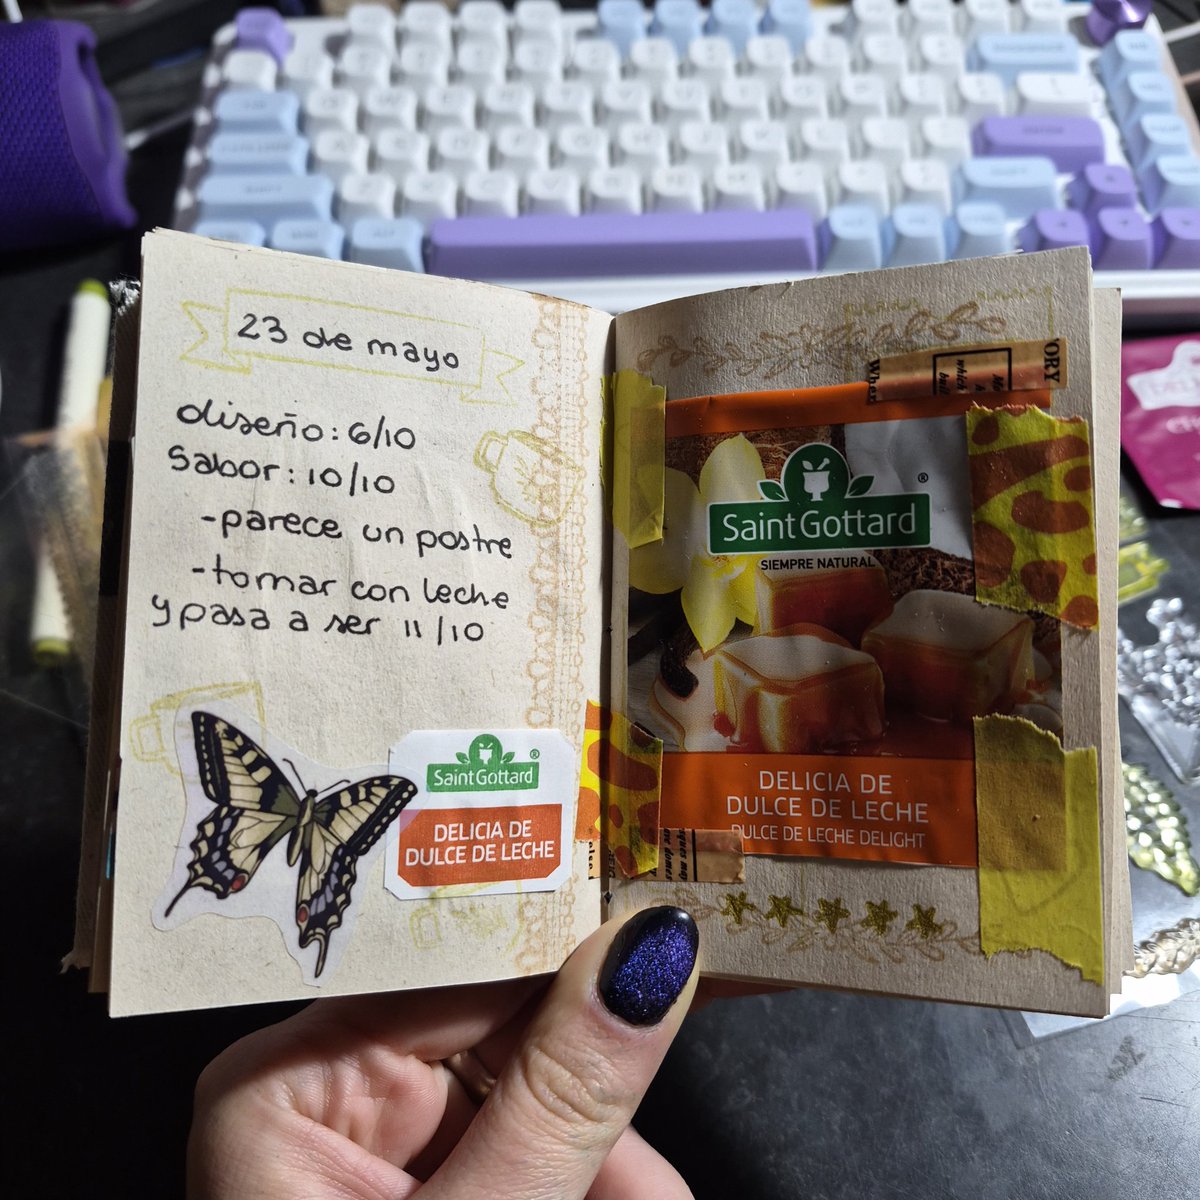 23 de mayo
diseño: 6/10
sabor: 10/10
-parece un postre
-tomar con leche
y pasa a ser 11/10
SaintGottard®
DELICIA DE
DULCE DE LECHE
ORY
which
SaintGottard®
SIEMPRE NATURAL
DELICIA DE
DULCE DE LECHE
DULCE DE LECHE DELIGHT